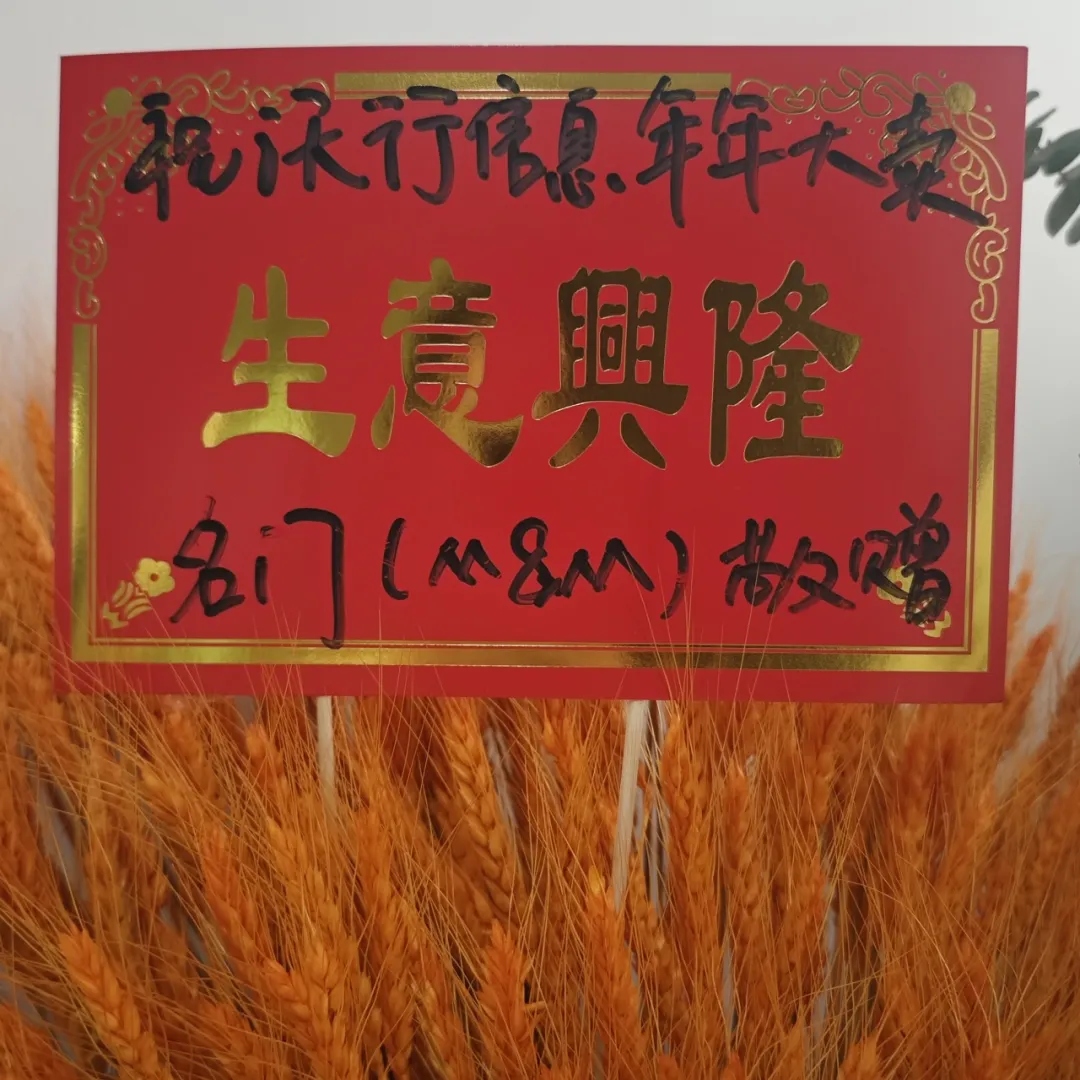 祝沃行信息.年年大卖
生意興隆
名门(M&M)敬赠